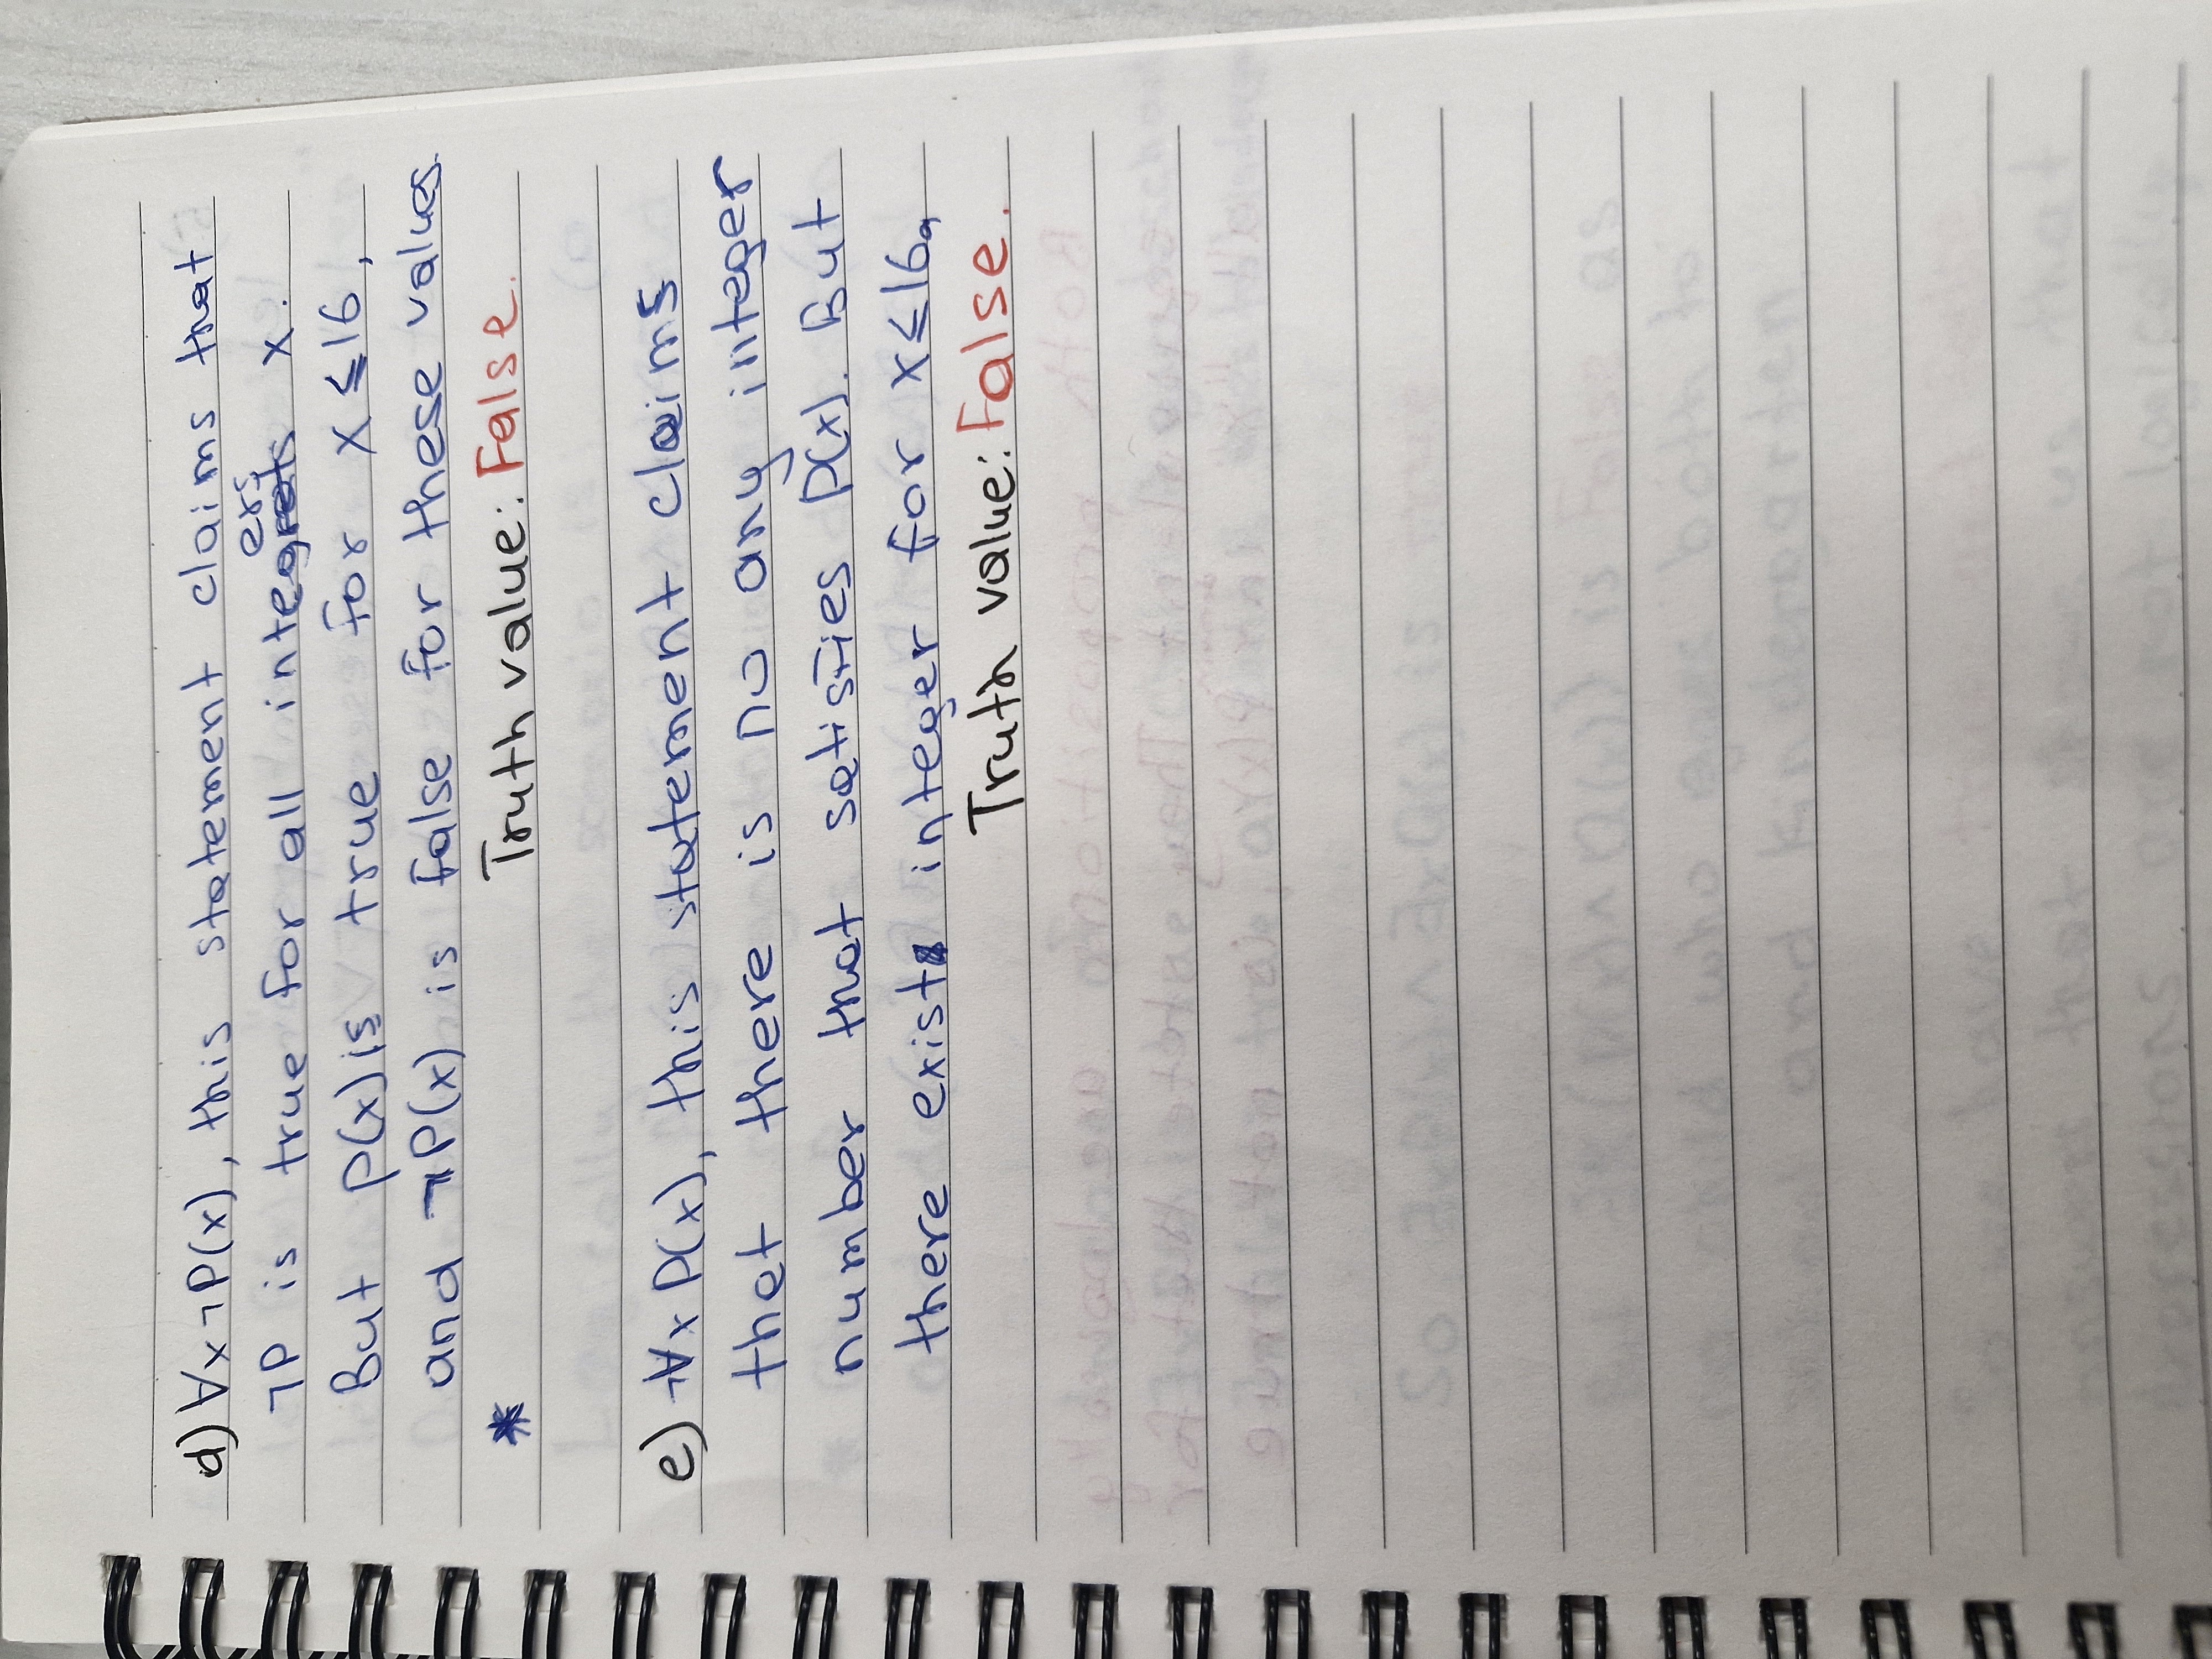 d) ∀x¬P(x), this statement claims that
¬P is true for all integers x.
But P(x) is true for x ≤ 16,
and ¬P(x) is false for these values.
* Truth value: False.
e) ¬∀x P(x), this statement claims
that there is no any integer
number that satisfies P(x). But
there exist integer for x ≤ 16.
Truth value: False.